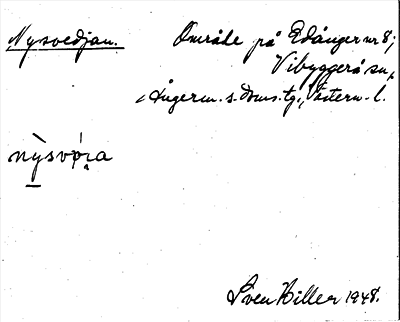 Nysvedjan.
Område på Edånger nr 8;
Vibyggerå sn,
Ångerm. s. doms. tg., Västern. l.
nỳsvǫ́ra
Sven Hiller 1948.